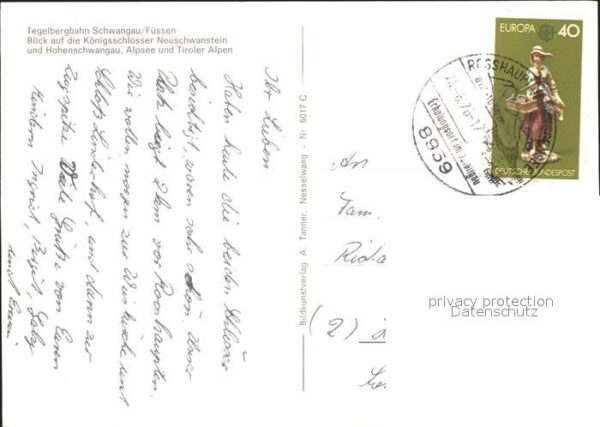 Tegelbergbahn Schwangau/Füssen
Blick auf die Königsschlösser Neuschwanstein
und Hohenschwangau, Alpsee und Tiroler Alpen
Ihr Lieben.
Haben heute die beiden Schlösser
besichtigt, waren sehr schön. Unser
Platz liegt 2 km vor Rosshaupten.
Wir wollen morgen zur Wieskirche und
Schloß Linderhof, und dann zur
Zugspitze. Viele Grüße von Euren
Kindern Ingrid, Birgit, Gaby
und
Bildkunstverlag A. Tanner, Nesselwang - Nr. 6017 C
EUROPA 40
DEUTSCHE BUNDESPOST
ROSSHAUPTEN
8959
Erholungsort im Allgäu
An
Fam.
(2)
privacy protection
Datenschutz